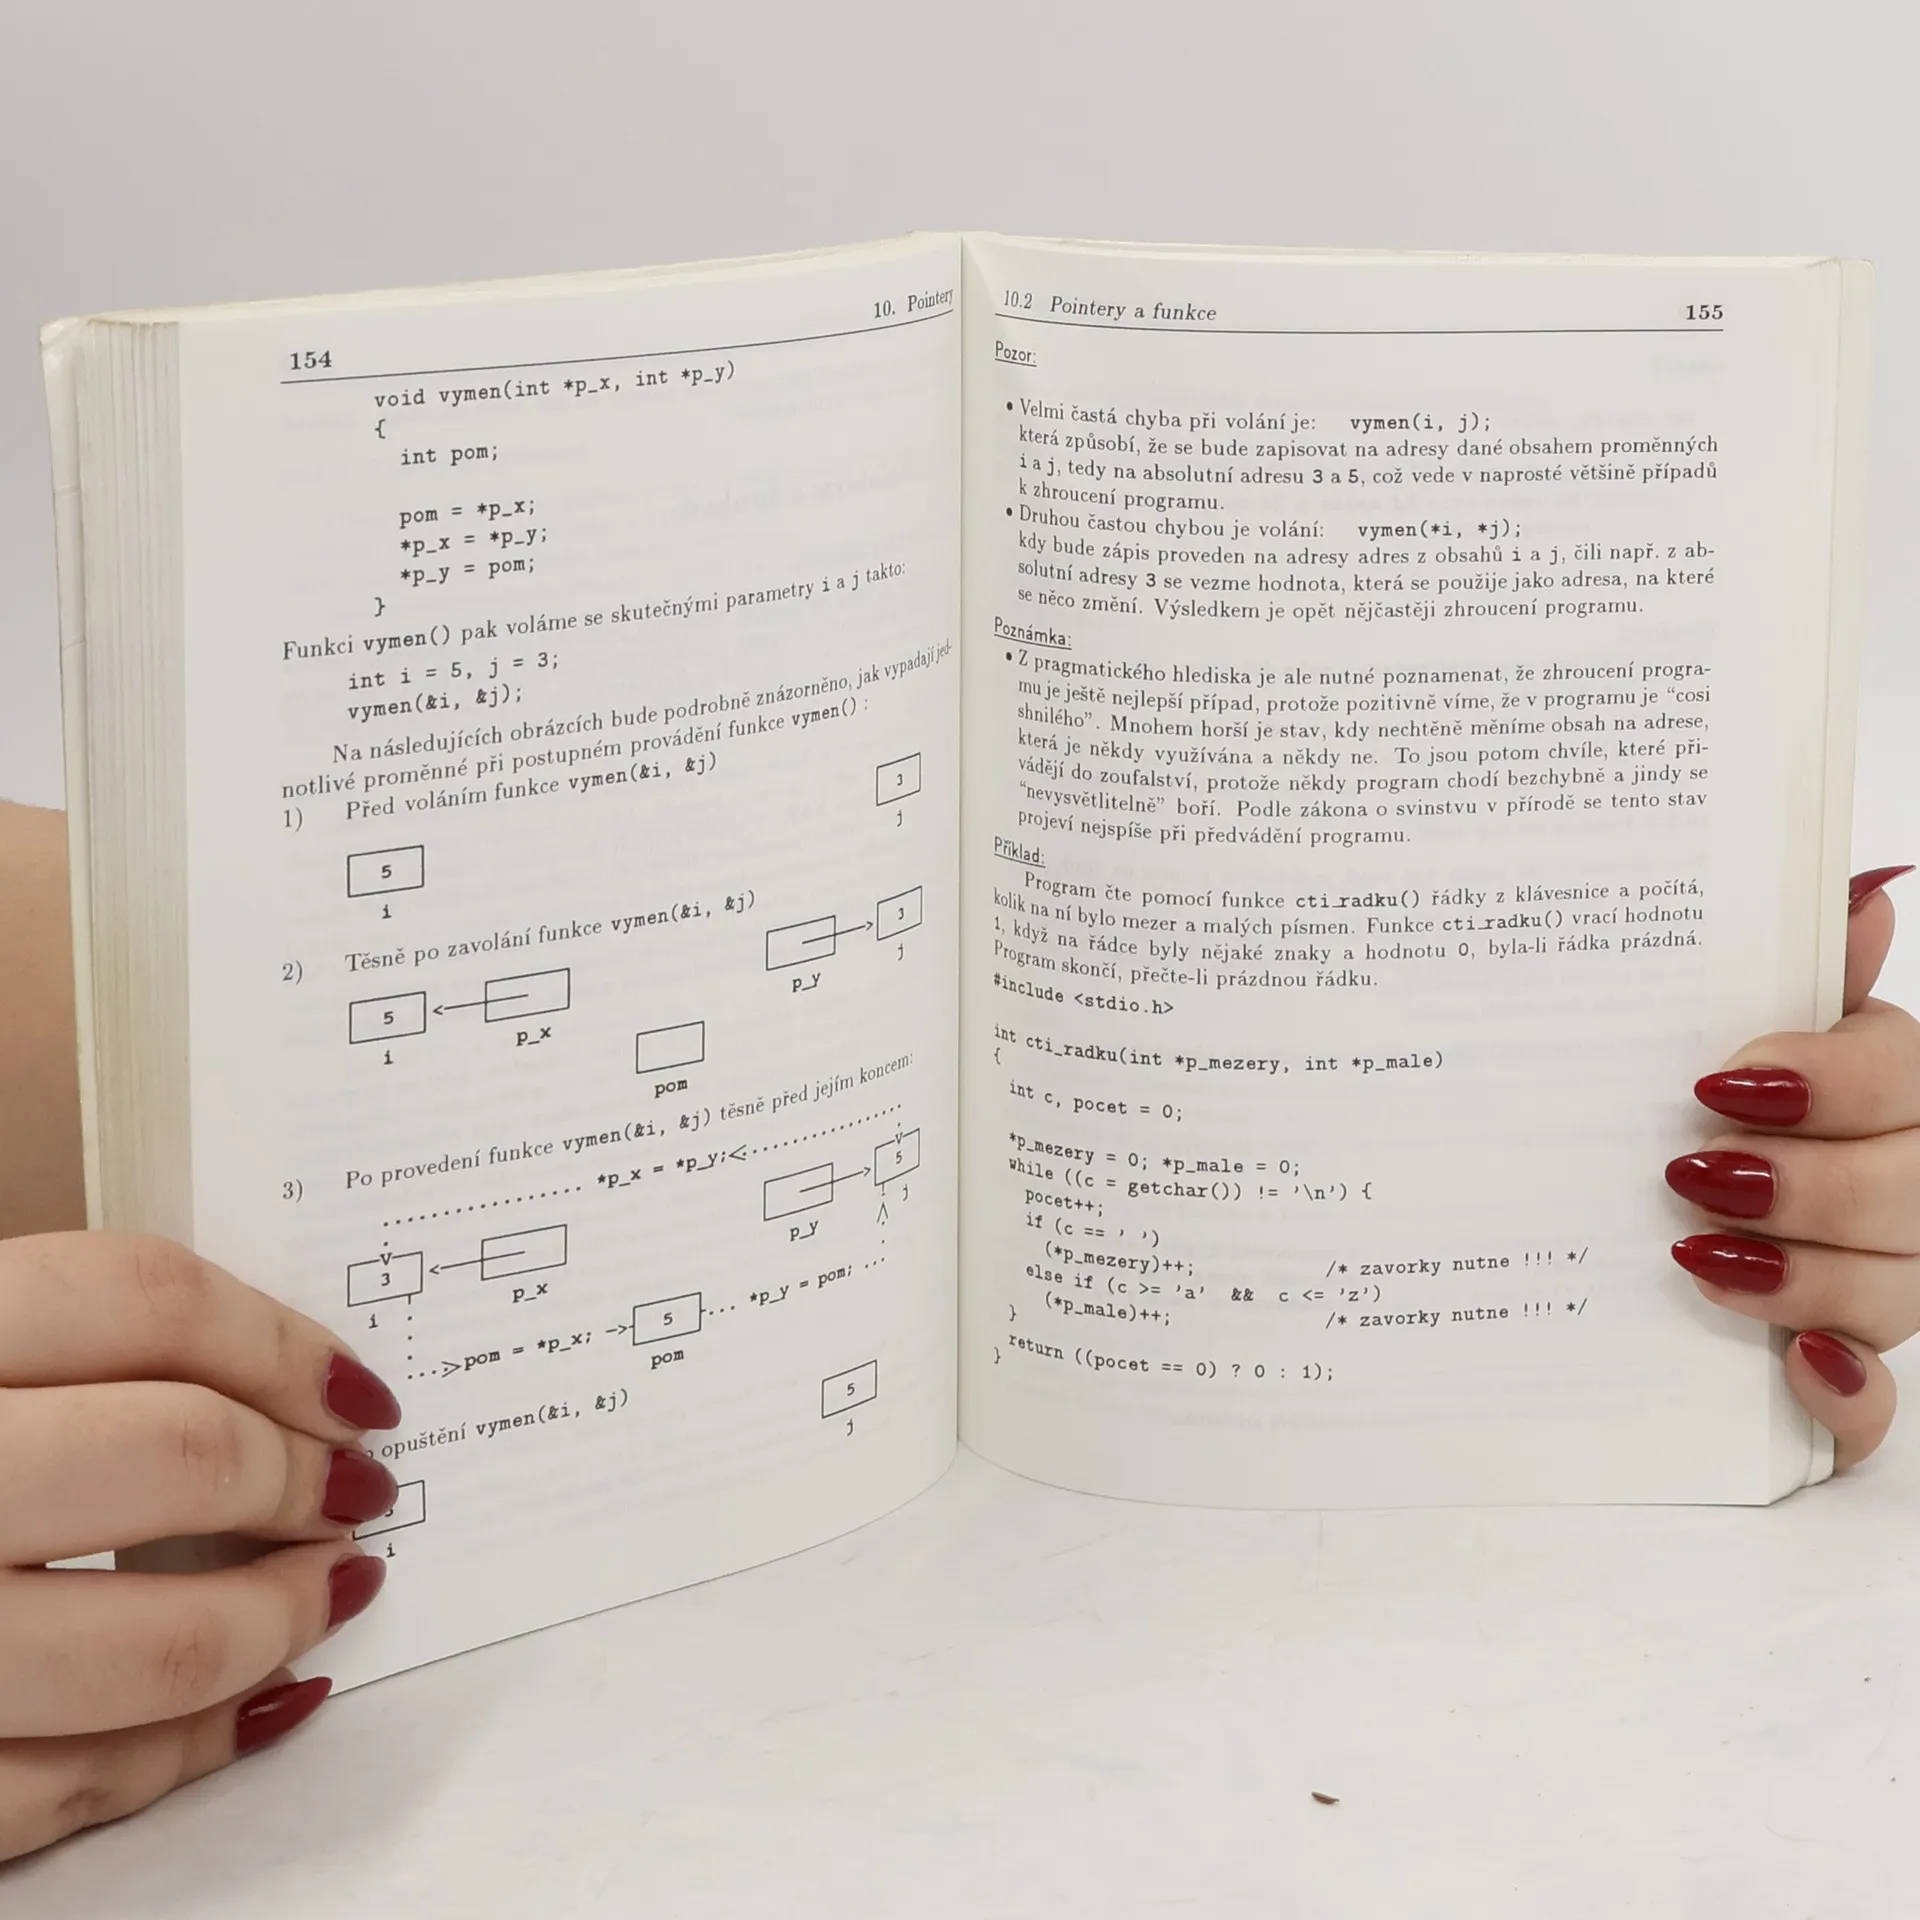 154
10. Pointery
void vymen(int *p_x, int *p_y)
{
int pom;
pom = *p_x;
*p_x = *p_y;
*p_y = pom;
}
Funkci vymen() pak voláme se skutečnými parametry i a j takto:
int i = 5, j = 3;
vymen(&i, &j);
Na následujících obrázcích bude podrobně znázorněno, jak vypadají jed-
notlivé proměnné při postupném provádění funkce vymen() :
1) Před voláním funkce vymen(&i, &j)
5
i
3
j
2) Těsně po zavolání funkce vymen(&i, &j)
5
i
p_x
p_y
3
j
pom
3) Po provedení funkce vymen(&i, &j) těsně před jejím koncem:
*p_x = *p_y;<
3
i
p_x
p_y
5
j
...>pom = *p_x; ->
5
pom
... *p_y = pom; ...
opuštění vymen(&i, &j)
i
5
j
10.2 Pointery a funkce
155
Pozor:
• Velmi častá chyba při volání je: vymen(i, j);
která způsobí, že se bude zapisovat na adresy dané obsahem proměnných
i a j, tedy na absolutní adresu 3 a 5, což vede v naprosté většině případů
k zhroucení programu.
• Druhou častou chybou je volání: vymen(*i, *j);
kdy bude zápis proveden na adresy adres z obsahů i a j, čili např. z ab-
solutní adresy 3 se vezme hodnota, která se použije jako adresa, na které
se něco změní. Výsledkem je opět nějčastěji zhroucení programu.
Poznámka:
• Z pragmatického hlediska je ale nutné poznamenat, že zhroucení progra-
mu je ještě nejlepší případ, protože pozitivně víme, že v programu je "cosi
shnilého". Mnohem horší je stav, kdy nechtěně měníme obsah na adrese,
která je někdy využívána a někdy ne. To jsou potom chvíle, které při-
vádějí do zoufalství, protože někdy program chodí bezchybně a jindy se
"nevysvětlitelně" boří. Podle zákona o svinstvu v přírodě se tento stav
projeví nejspíše při předvádění programu.
Příklad:
Program čte pomocí funkce cti_radku() řádky z klávesnice a počítá,
kolik na ní bylo mezer a malých písmen. Funkce cti_radku() vrací hodnotu
1, když na řádce byly nějaké znaky a hodnotu 0, byla-li řádka prázdná.
Program skončí, přečte-li prázdnou řádku.
#include <stdio.h>
int cti_radku(int *p_mezery, int *p_male)
{
int c, pocet = 0;
*p_mezery = 0; *p_male = 0;
while ((c = getchar()) != '\n') {
pocet++;
if (c == ' ')
(*p_mezery)++; /* zavorky nutne !!! */
else if (c >= 'a' && c <= 'z')
(*p_male)++; /* zavorky nutne !!! */
}
return ((pocet == 0) ? 0 : 1);
}